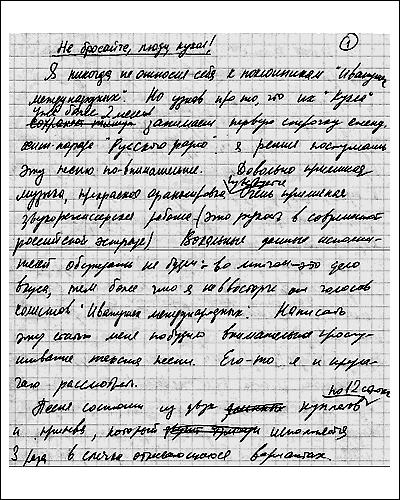 Не бросайте, люди, кукол!
1
Я никогда не относил себя к поклонникам "Иванушек
международных". Но узнав про то, что их "Кукла"
уже более 2 месяцев
занимает первую строчку в
хит-параде "Русского радио" я решил послушать
эту песню по-внимательнее. Довольно приличная
музыка, прекрасная аранжировка очень приличная
звукорежиссерская работа (это редкость в современной
российской эстраде) Вокальные данные исполни-
телей обсуждать не будем: во многом это дело
вкуса, тем более что я не в восторге от голосов
солистов "Иванушек международных". Написать
эту статью меня побудило внимательное прослу-
шивание текста песни. Его-то я и предла-
гаю рассмотреть.
по 12 строк
Песня состоит из двух куплетов
и припева, который исполняется
3 раза в слегка отличающихся вариантах.